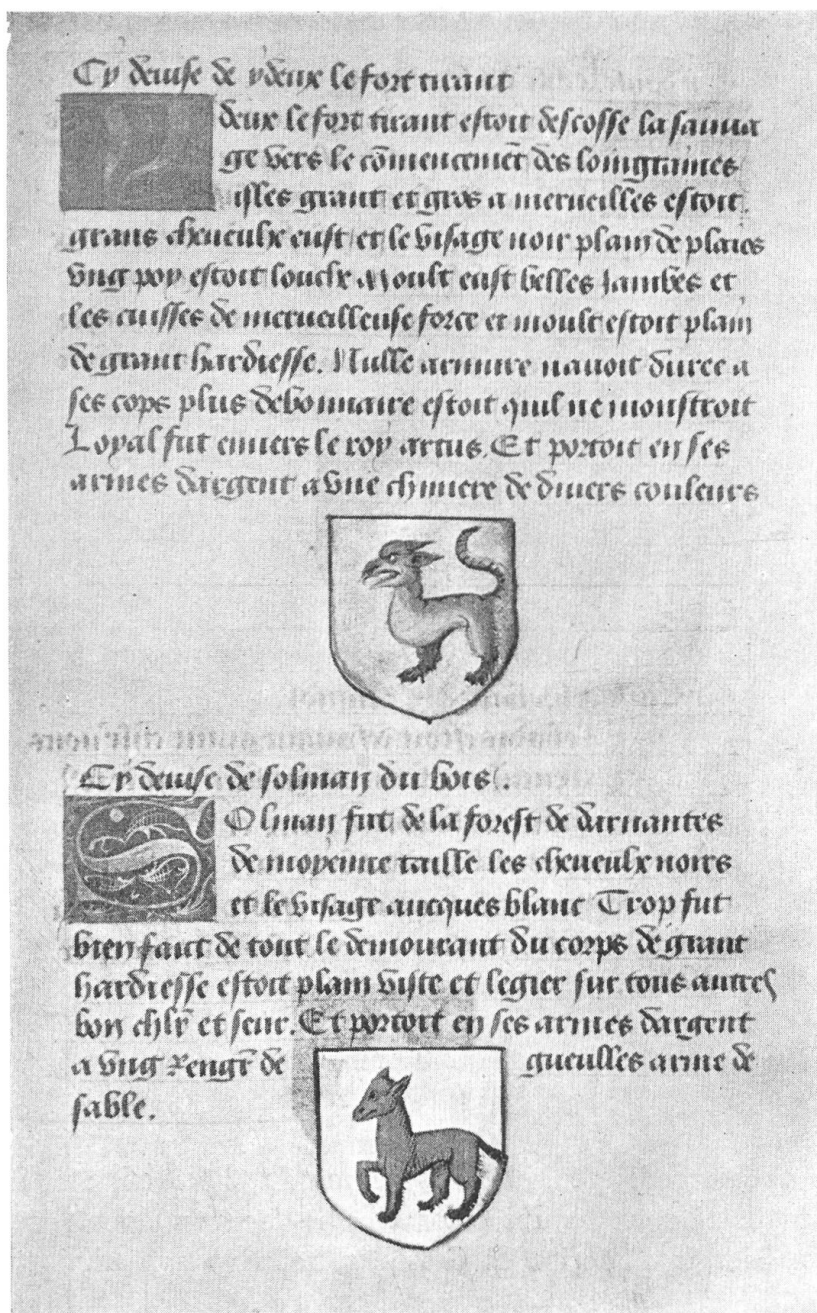 Cy deuise de ydeux le fort tirant
Ydeux le fort tirant estoit descosse la sauua
ge vers le cōmencemēt des loingtaines
isles grant et gros a merueilles estoit
grans cheueulx eust et le visage noir plain de plaies
vng poy estoit lousche Moult eust belles jambes et
les cuisses de merueilleuse force et moult estoit plain
de grant hardiesse. Nulle armure nauoit duree a
ses cops plus debonnaire estoit quil ne monstroit
Loyal fut enuers le roy artus. Et portoit en ses
armes dargent a vne chimere de diuers couleurs
Cy deuise de solman du bois.
SOlman fut de la forest de darnantes
de moyenne taille les cheueulx noirs
et le visage aucques blanc Trop fut
bien faict de tout le demourant du corps de grant
hardiesse estoit plain viste et legier sur tous autres
bon chlr̄ et seur. Et portoit en ses armes dargent
a vng de gueulles arme de
sable.